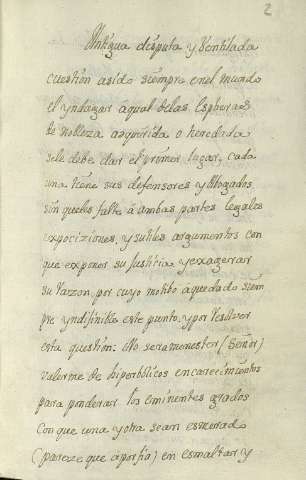 2
Antigua disputa y Ventilada
cuestion asido siempre enel mundo
el yndagar áqual delas Espheras
de nobleza adquirida o heredada
sele debe dar el primer lugar, cada
una tiene sus defensores y Abogados
sin queles falte á ambas partes legales
expociziones, y sutiles argumentos con
que exponer su Justicia y exagerar
su razon, por cuyo motibo aquedado siem
pre yndifinible este punto, y por resolver
esta question: No sera menester (Señor)
valerme de hiperbolicos encarecimientos
para ponderar los eminentes grados
con que una y otra sean esmerado
(pareze que áporfia) en esmaltar y